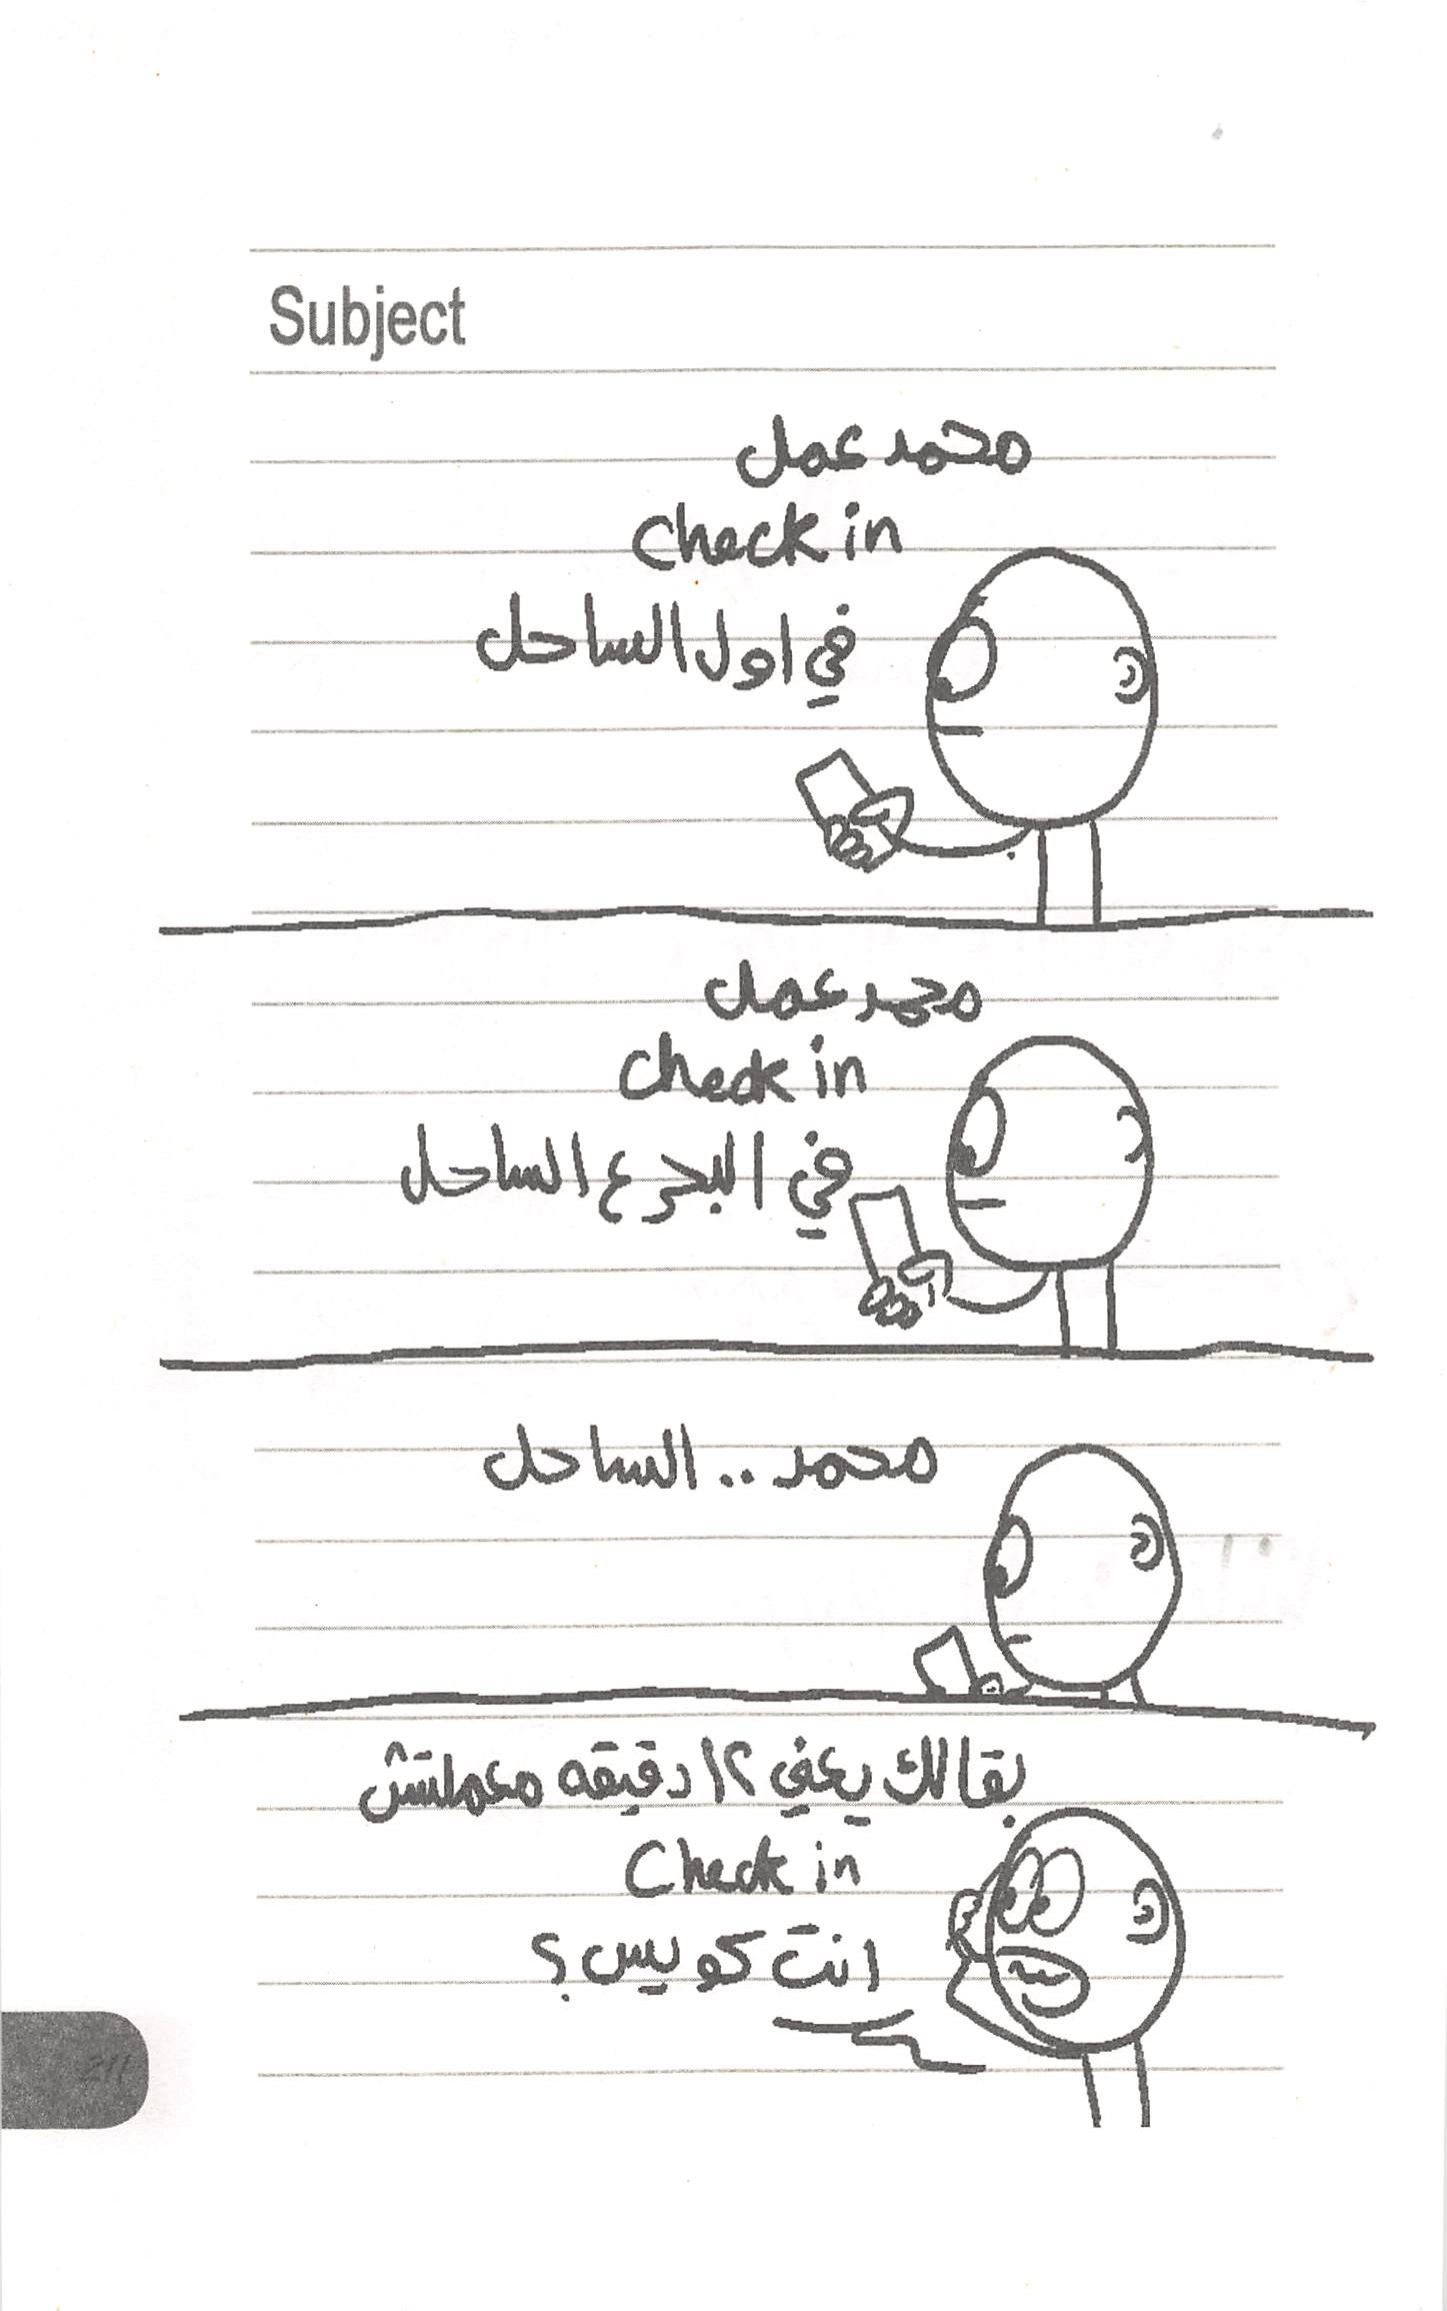 Subject
محمد عمل
check in
في اول الساحل
محمد عمل
check in
في البحر ع الساحل
محمد .. الساحل
بقالك يعني ١٢ دقيقه معملتش
Check in
انت كويس؟